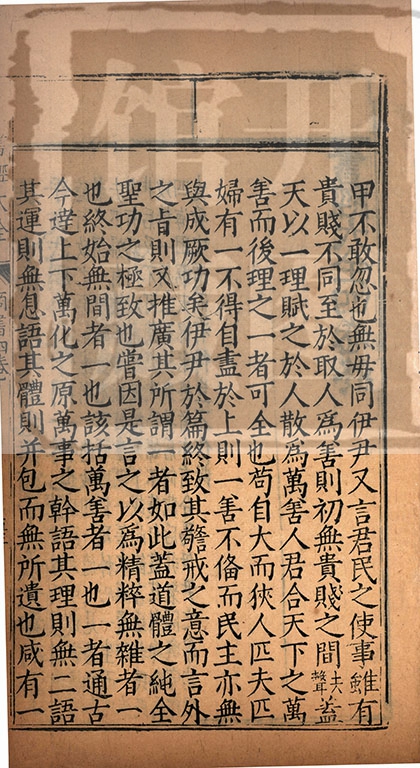 甲不敢忽也無毋同伊尹又言君民之使事雖有
貴賤不同至於取人爲善則初無貴賤之間去聲蓋
天以一理賦之於人散爲萬善人君合天下之萬
善而後理之一者可全也苟自大而狹人匹夫匹
婦有一不得自盡於上則一善不備而民主亦無
與成厥功矣伊尹於篇終致其警戒之意而言外
之旨則又推廣其所謂一者如此蓋道體之純全
聖功之極致也嘗因是言之以爲精粹無雜者一
也終始無間者一也該括萬善者一也一者通古
今達上下萬化之原萬事之幹語其理則無二語
其運則無息語其體則并包而無所遺也咸有一